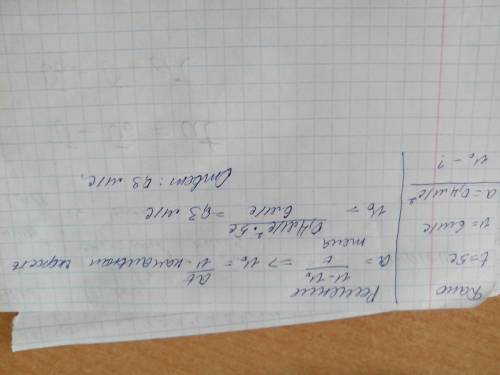 Дано
t=5c
υ=6м/с
a=0,4м/с²
υ₀-?
Решение
a = υ-υ₀ / t => υ₀ = υ / at - начальная скорость
тела
υ₀ = 6м/с / 0,4м/с²·5с = 0,3 м/с
Ответ: 0,3 м/с.